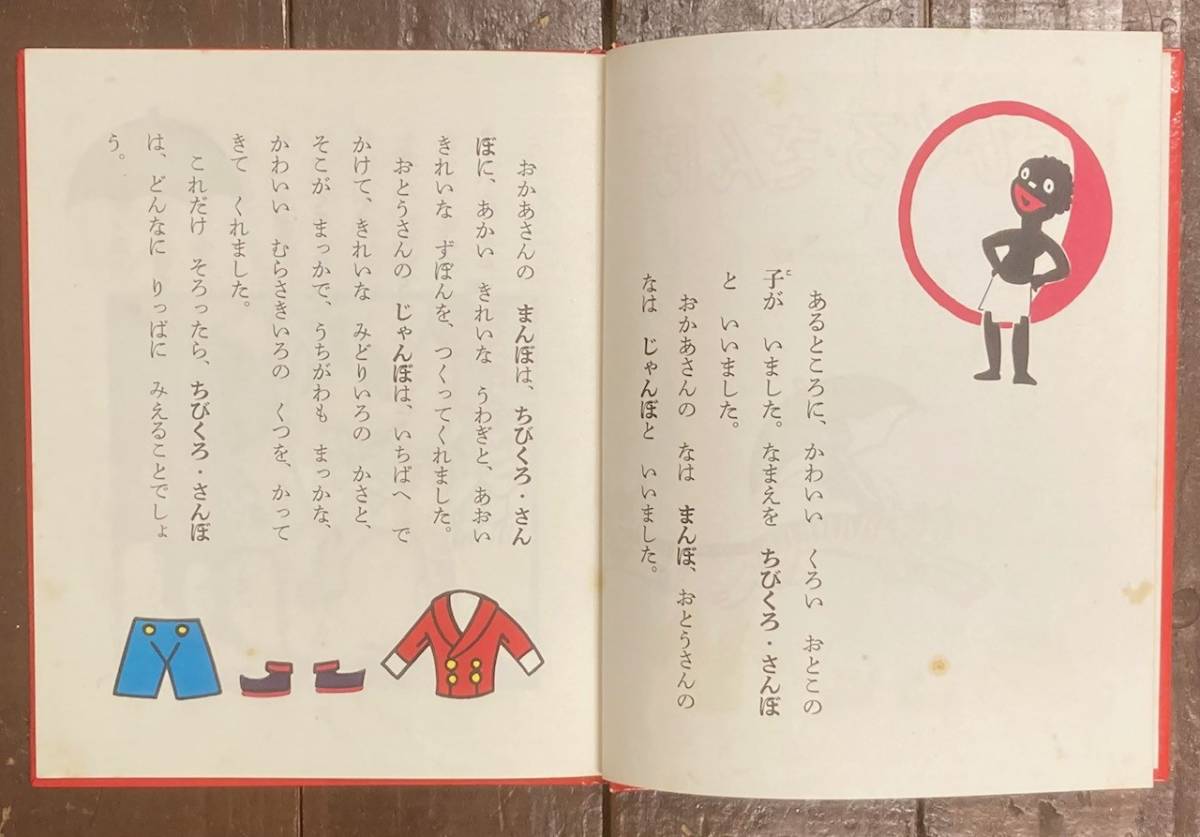 あるところに、かわいい くろい おとこの
子が いました。なまえを ちびくろ・さんぼ
と いいました。
おかあさんの なは まんぼ、おとうさんの
なは じゃんぼと いいました。
おかあさんの まんぼは、ちびくろ・さん
ぼに、あかい きれいな うわぎと、あおい
きれいな ずぼんを、つくってくれました。
おとうさんの じゃんぼは、いちばへ で
かけて、きれいな みどりいろの かさと、
そこが まっかで、うちがわも まっかな、
かわいい むらさきいろの くつを、かって
きて くれました。
これだけ そろったら、ちびくろ・さんぼ
は、どんなに りっぱに みえることでしょ
う。